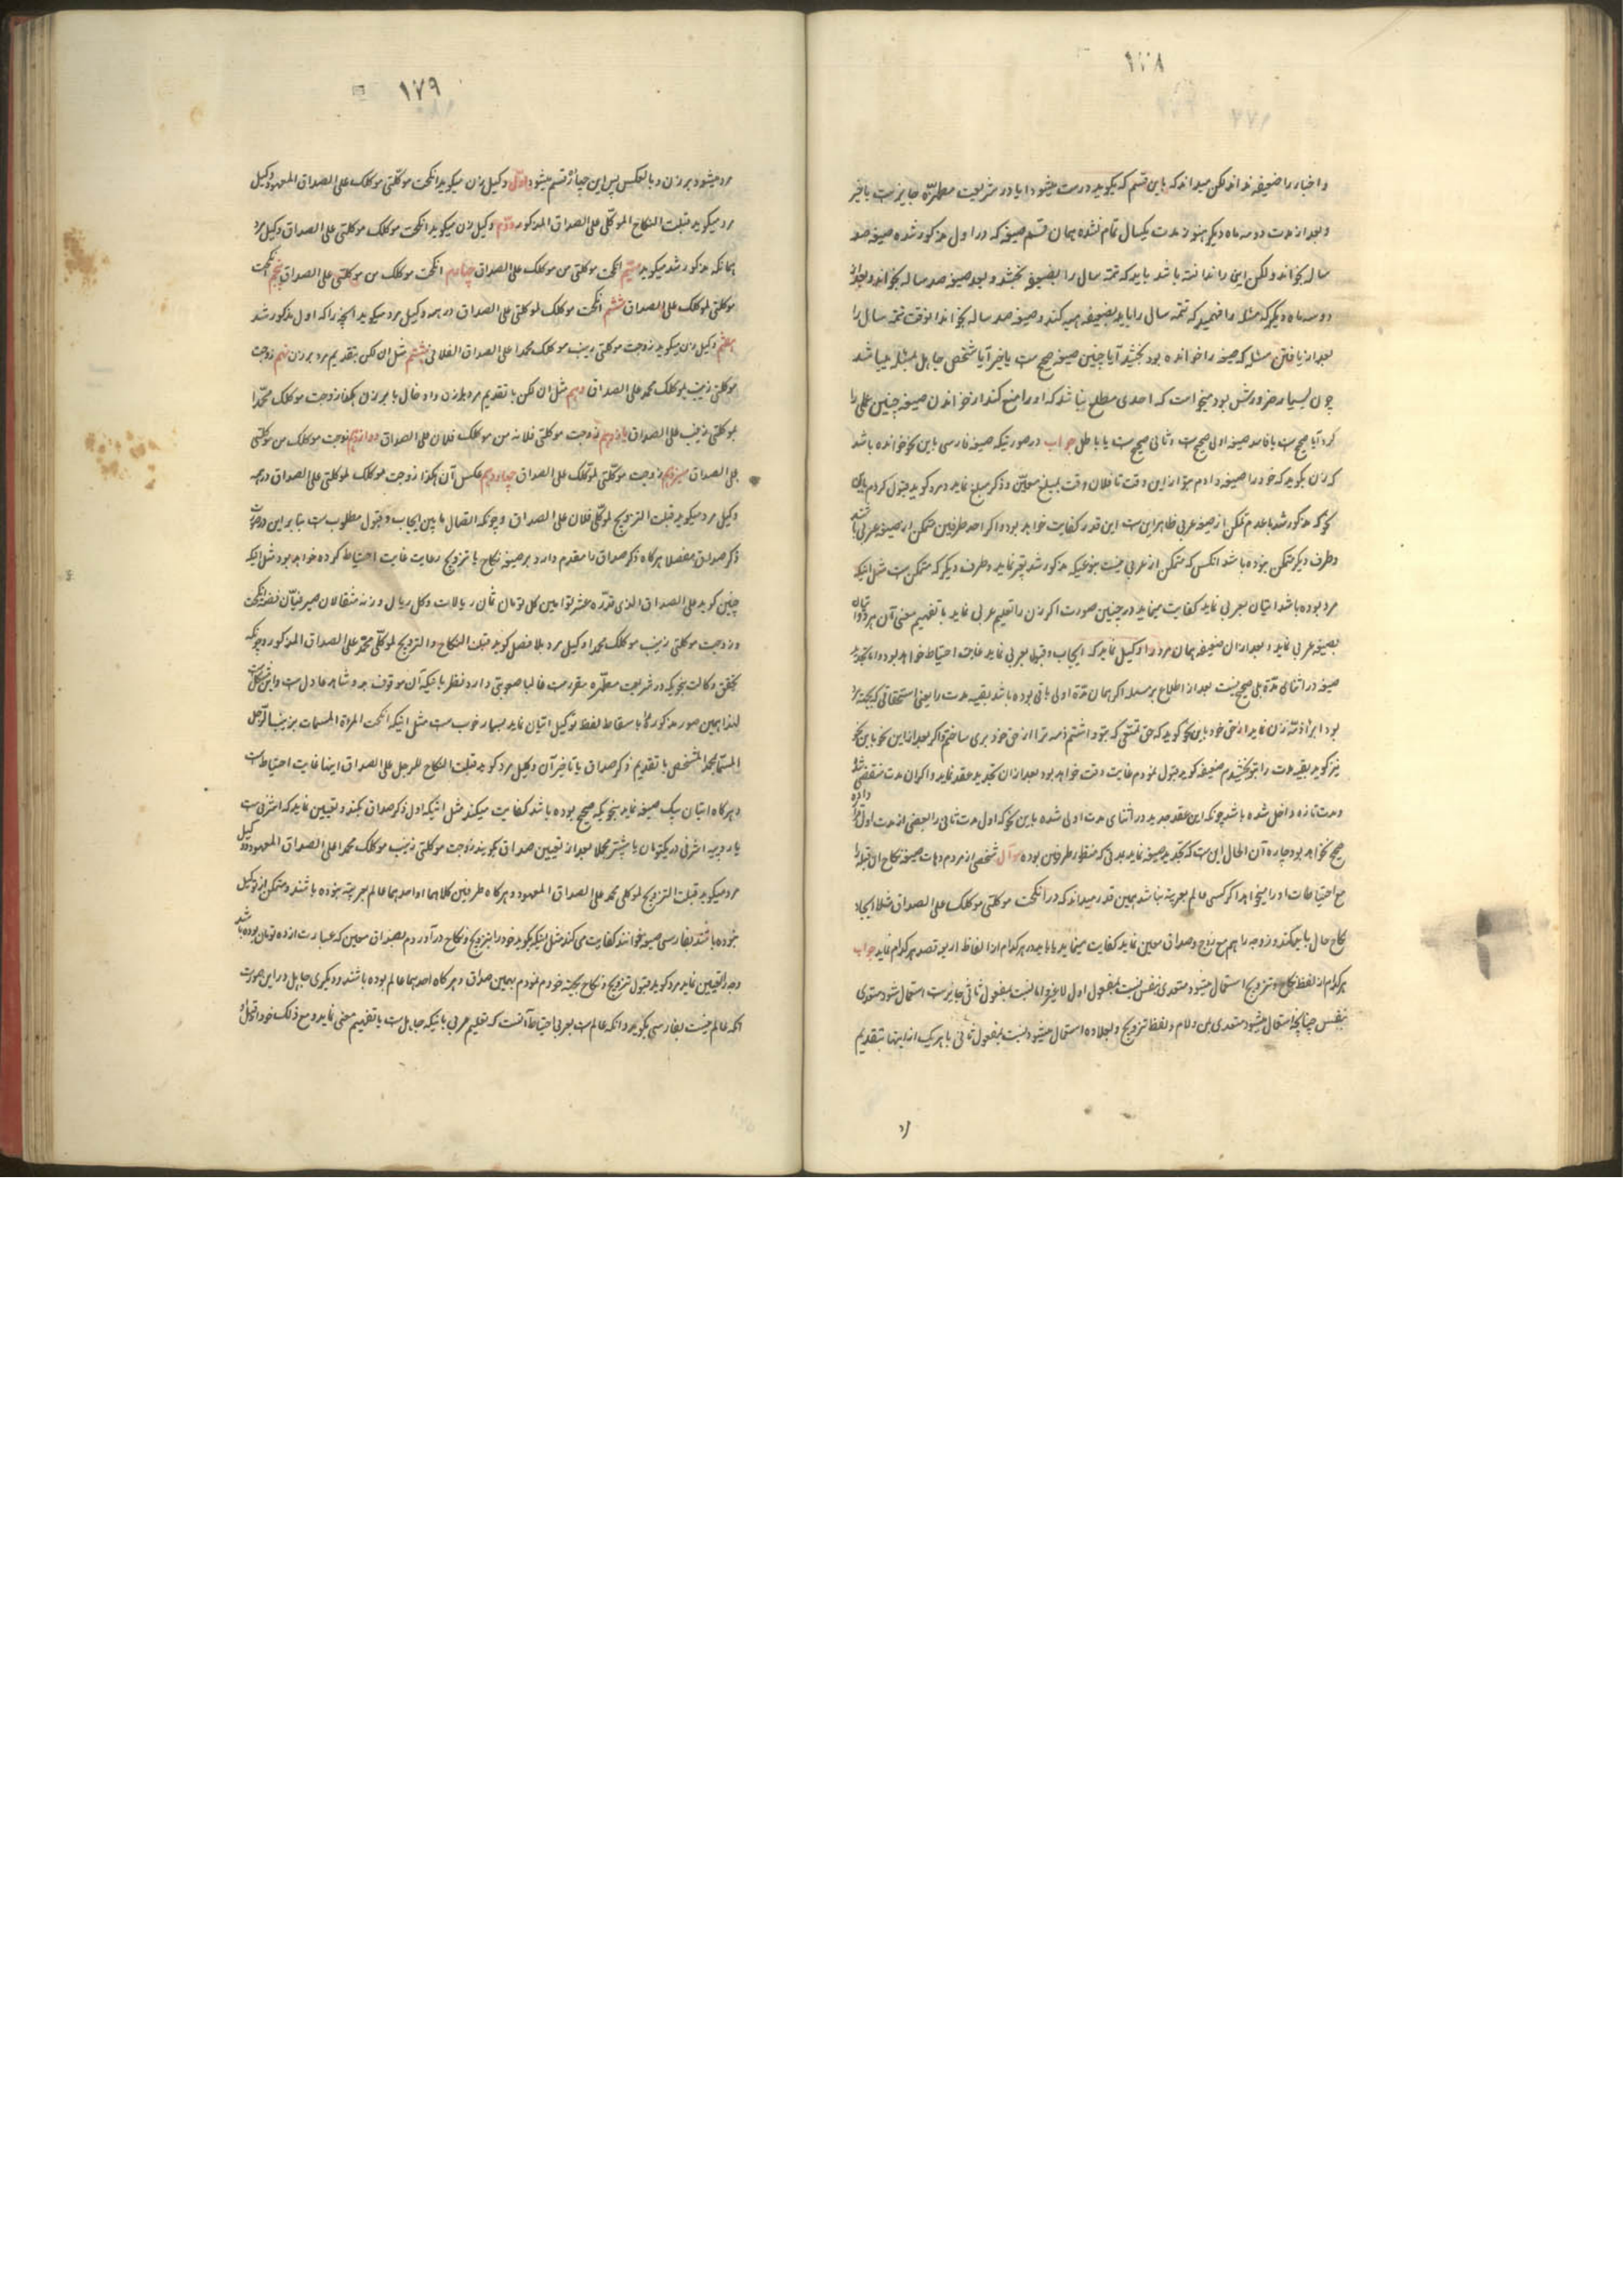 ۱۷۸
و اخبار را ضعیفه نداند لکن میداند که باین قسم که بگوید درست میشود ایا در شریعت مطهره جایزست یا خیر
و بعد از مدت دو سه ماه دیگر هنوز مدت یکسال تمام نشده همان قسم صیغه که در اول مذکور شده صیغه صد
ساله بخواند و لکن این را ندانسته باشد باید که تتمه سال را بضعیفه بخشد و بعد صیغه صد ساله بخواند و بعد از
دو سه ماه دیگر که مسئله را فهمید که تتمه سال را باید بضعیفه هبه کند و صیغه صد ساله بخواند انوقت تتمه سال را
بعد از یافتن مسئله که صیغه را خوانده بود بخشید آیا چنین صیغه صحیح ست یا خیر آیا شخص جاهل بمسئله میباشد
چون بسیار ضرورتش بود میخواست که احدی مطلع نباشد که او را منع کند از خواندن صیغه چنین عملی را
کرد آیا صحیح ست یا فاسد صیغه اولی صحیح ست و ثانی صحیح ست یا باطل جواب در صورتیکه صیغه فارسی باین نحو خوانده باشد
که زن بگوید که خود را صیغه دادم بتو از این وقت تا فلان وقت بمبلغ معین و ذکر مبلغ نماید و مرد گوید قبول کردم باین
نحو که مذکور شد با عدم تمکن از صیغه عربی ظاهر این ست این قدر کفایت خواهد بود و اگر احد طرفین متمکن از صیغه عربی باشد
و طرف دیگر متمکن نبوده باشد انکس که متمکن از عربی نیست بنوعیکه مذکور شد نماید و طرف دیگر که متمکن ست مثل اینکه
مرد بوده باشد اتیان بعربی نماید کفایت مینماید در چنین صورت اگر زن را تعلیم عربی نماید با تفهیم معنی آن هر دو اتیان
بصیغه عربی نماید و بعد از ان ضعیفه همان مرد را وکیل نماید که ایجاب و قبول بعربی نماید غایت احتیاط خواهد بود و اما تجدید
صیغه در اثنای مدة بلی صحیح نیست بعد از اطلاع بر مسئله اگر همان مدة اولی باقی بوده باشد بقیه مدت را یعنی استحقاقی که بجهة مرد
بود ابراء ذمه زن نماید از حق خود باین نحو گوید که حق تمتعی که بتو داشتم ذمه ترا از حق خود بری ساختم و اگر بعد از این نحو باین نحو
نیز گوید بقیه مدت را بتو بخشیدم ضعیفه گوید قبول نمودم غایت دقت خواهد بود بعد از ان تجدید عقد نماید و اگر ان مدت منقضی شده
و مدت تازه داخل شده باشد چونکه این عقد جدید در اثنای مدت اولی شده باین نحو که اول مدت ثانی را بعضی از مدت اول قرار داده
صحیح نخواهد بود چاره آن الحال این ست که تجدید صیغه نماید بمدتی که منظور طرفین بوده سوال شخصی از مردم دهات صیغه نکاح ان قبیله را
مع احتیاطات او را میخواهد اگر کسی عالم بعربیة نباشد همین قدر میداند که در انکحت موکلتی موکلک علی الصداق مثلا ایجاد
نکاح حال یا میکند و زوجه را هم مع زوج و صداق معین نماید کفایت مینماید یا باید در هر کدام از الفاظ اربعه قصد هر کدام نماید جواب
هر کدام از لفظ نکاح و تزویج استعمال میشود متعدی بنفس نسبت بمفعول اول لا غیر و اما نسبت بمفعول ثانی جایز ست استعمال شود متعدی
بنفس چنانچه استعمال میشود متعدی بمن و لام و لفظ تزویج و بعلاوه استعمال میشود نسبت بمفعول ثانی با هر یک از اینها بتقدیم
۱۷۹
مرد میشود بر زن و بالعکس پس این چهارده قسم میشود اول وکیل زن میگوید انکحت موکلتی موکلک علی الصداق المعهود وکیل
مرد میگوید قبلت النکاح لموکلی علی الصداق المذکور دوم وکیل زن میگوید انکحت موکلک موکلتی علی الصداق وکیل مرد
همانکه مذکور شد میگوید سیم انکحت موکلتی من موکلک علی الصداق چهارم انکحت موکلک من موکلتی علی الصداق پنجم انکحت
موکلتی لموکلک علی الصداق ششم انکحت موکلک لموکلتی علی الصداق در همه وکیل مرد میگوید انچه را که اول مذکور شد
هفتم وکیل زن میگوید زوجت موکلتی زینب موکلک محمدا علی الصداق الفلانی هشتم مثل ان لکن بتقدیم مرد بر زن نهم زوجت
موکلتی زینب بموکلک محمد علی الصداق دهم مثل ان لکن با تقدیم مرد بر زن و ادخال با بر زن هکذا زوجت موکلک محمدا
بموکلتی زینب علی الصداق یازدهم زوجت موکلتی فلانه من موکلک فلان علی الصداق دوازدهم زوجت موکلک من موکلتی
علی الصداق سیزدهم زوجت موکلتی لموکلک علی الصداق چهاردهم عکس آن هکذا زوجت موکلک لموکلتی علی الصداق در همه
وکیل مرد میگوید قبلت التزویج لموکلی فلان علی الصداق و چونکه اتصال ما بین ایجاب و قبول مطلوب ست بنا بر این در صورت
ذکر صداق مفصلا هرگاه ذکر صداق را مقدم دارد بر صیغه نکاح یا تزویج رعایت غایت احتیاط کرده خواهد بود مثل اینکه
چنین گوید علی الصداق الذی قدره عشر توامین کل تومان ثمان ریالات و کل ریال وزنه مثقالان صیرفیان فضة انکحت
و زوجت موکلتی زینب موکلک محمدا وکیل مرد بلا فصل گوید قبلت النکاح و التزویج لموکلی محمد علی الصداق المذکور و چونکه
تحقق وکالت بنحویکه در شریعت مطهره مقرر ست غالبا صعوبتی دارد نظر باینکه آن موقوف بدو شاهد عادل ست و این مشکل ست
لهذا همین صور مذکوره باسقاط لفظ توکیل اتیان نماید بسیار خوب ست مثل اینکه انکحت المراة المسمات بزینب الرجل
المسما بمحمد المشخص با تقدیم ذکر صداق یا تاخیر آن وکیل مرد گوید قبلت النکاح للرجل علی الصداق ایضا غایت احتیاط ست
و هرگاه اتیان بیک صیغه نماید بنحویکه صحیح بوده باشد کفایت میکند مثل اینکه اول ذکر صداق بکند و تعیین نماید که اشرفی ست
یا روپیه اشرفی در یکتومان یا بیشتر مجملا بعد از تعیین صداق بگوید زوجت موکلتی زینب موکلک محمدا علی الصداق المعهود وکیل
مرد میگوید قبلت التزویج لموکلی محمد علی الصداق المعهود و هرگاه طرفین کلاهما او احدهما عالم بعربیة نبوده باشند و متمکن از توکیل
نبوده باشند بفارسی صیغه بخوانند کفایت می کند مثل اینکه بگوید خود را بتزویج و نکاح در آوردم بصداق معین که عبارت از ده تومان بوده باشد
وجه را تعیین نماید مرد گوید قبول تزویج و نکاح بجهة خودم نمودم بهمین صداق و هرگاه احدهما عالم بوده باشند و دیگری جاهل در این صورت
انکه عالم نیست بفارسی بگوید و انکه عالم ست بعربی احتیاط آنست که تعلیم عربی باینکه جاهل ست با تفهیم معنی نماید و مع ذلک خود اقبل